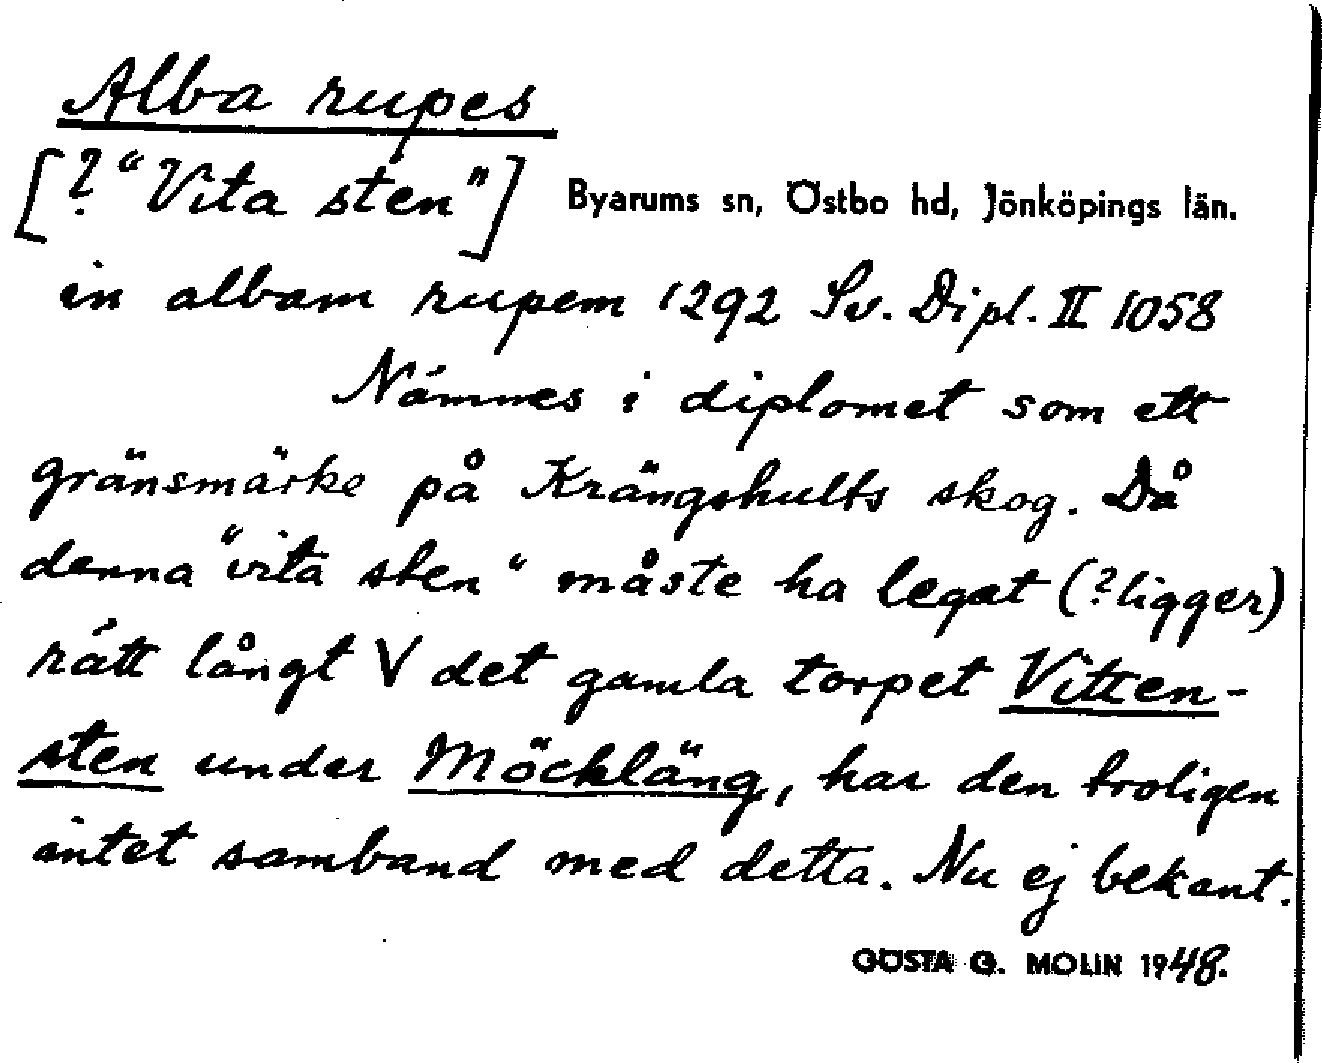 Alba rupes
[? "Vita sten"] Byarums sn, Östbo hd, Jönköpings län.
in albam rupem 1292 Sv. Dipl. II 1058
Nämnes i diplomet som ett
gränsmärke på Krängshults skog. Då
denna "vita sten" måste ha legat (? ligger)
rätt långt V det gamla torpet Vitten-
sten under Möckläng, har den troligen
intet samband med detta. Nu ej bekant.
GÖSTA G. MOLIN 1948.